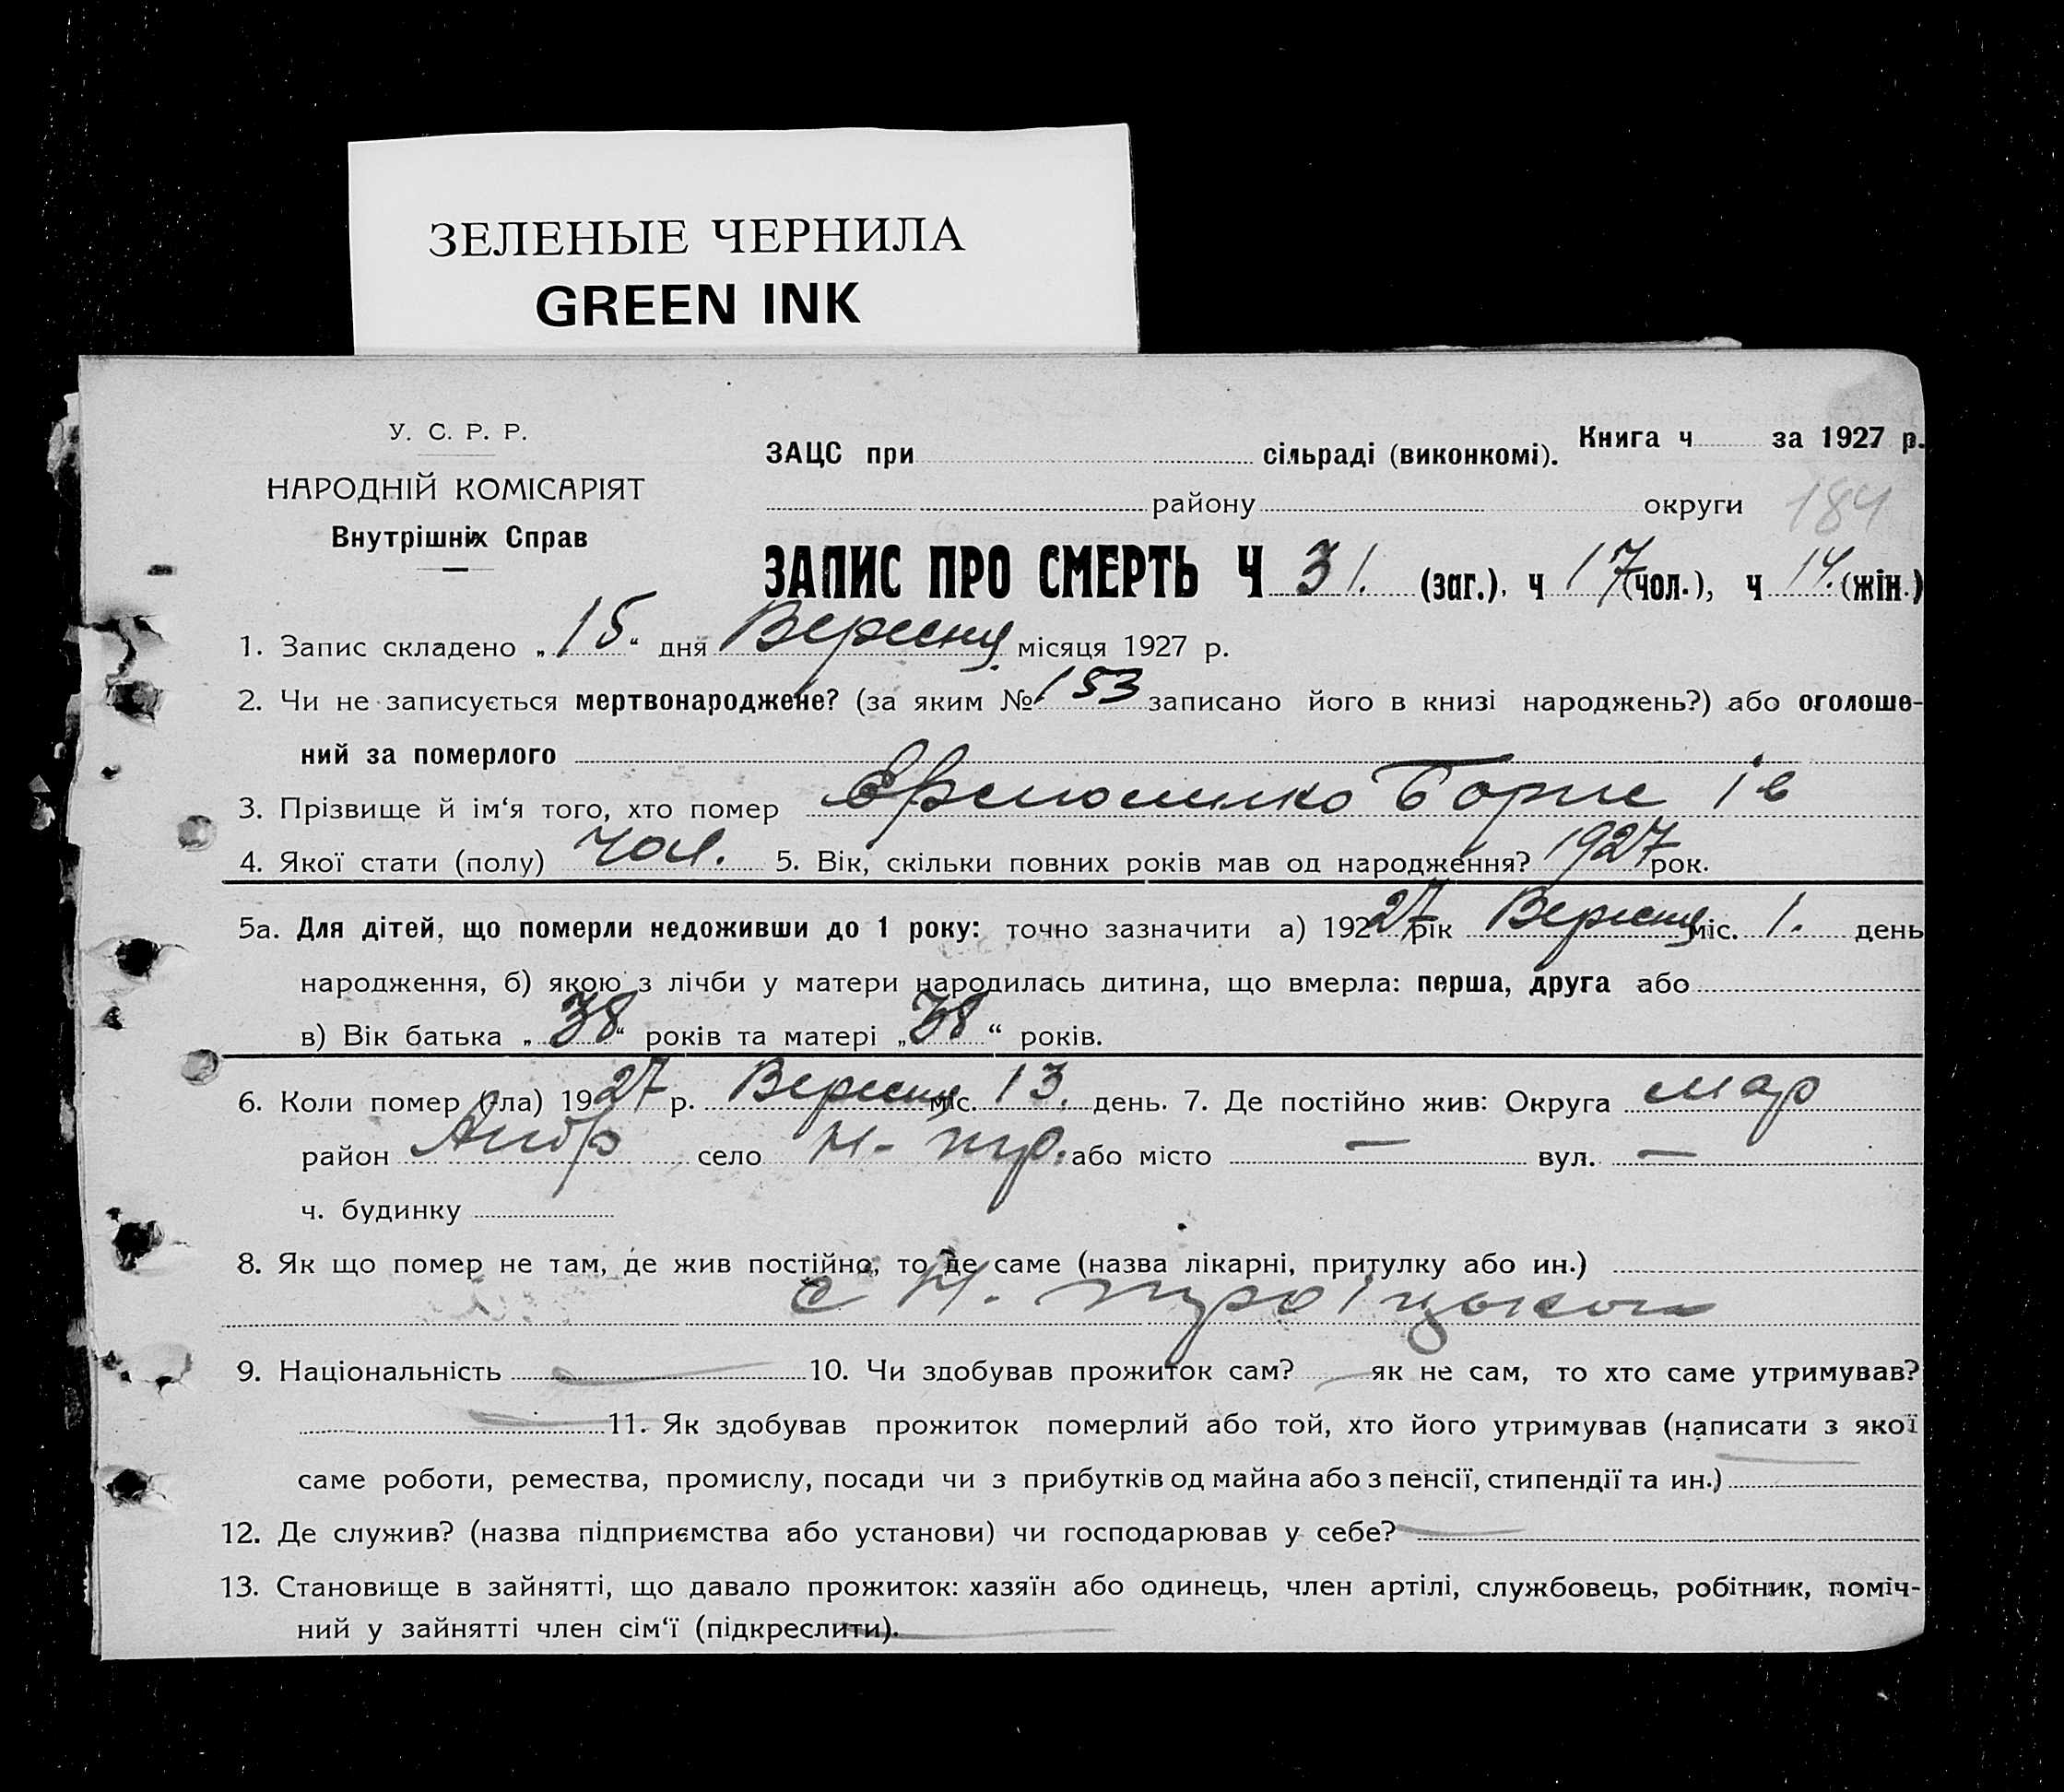 ЗЕЛЕНЫЕ ЧЕРНИЛА
GREEN INK
У. С. Р. Р.
НАРОДНІЙ КОМІСАРІЯТ
Внутрішніх Справ
Книга ч за 1927 р.
ЗАЦС при сільраді (виконкомі).
району округи 184
ЗАПИС ПРО СМЕРТЬ Ч 31. (заг.), ч 17 (чол.), ч 14. (жін.)
1. Запис складено „15“ дня Вересня місяця 1927 р.
2. Чи не записується мертвонароджене? (за яким № 153 записано його в книзі народжень?) або оголоше-
ний за померлого
3. Прізвище й ім‘я того, хто помер Борис Ів
4. Якої стати (полу) чол. 5. Вік, скільки повних років мав од народження? 1927 рок.
5а. Для дітей, що померли недоживши до 1 року: точно зазначити а) 192 27 рік Вересня міс. 1. день
народження, б) якою з лічби у матери народилась дитина, що вмерла: перша, друга або
в) Вік батька „38“ років та матері „38“ років.
6. Коли помер (-ла) 1927 р. Вересня міс. 13. день. 7. Де постійно жив: Округа Мар
район Андр село Н- Тр. або місто — вул. —
ч. будинку
8. Як що помер не там, де жив постійно, то де саме (назва лікарні, притулку або ин.)
с Н. Троїцьком
9. Національність 10. Чи здобував прожиток сам? — як не сам, то хто саме утримував?
11. Як здобував прожиток померлий або той, хто його утримував (написати з якої
саме роботи, ремества, промислу, посади чи з прибутків од майна або з пенсії, стипендії та ин.)
12. Де служив? (назва підприємства або установи) чи господарював у себе?
13. Становище в зайнятті, що давало прожиток: хазяїн або одинець, член артілі, службовець, робітник, поміч-
ний у зайнятті член сім‘ї (підкреслити).